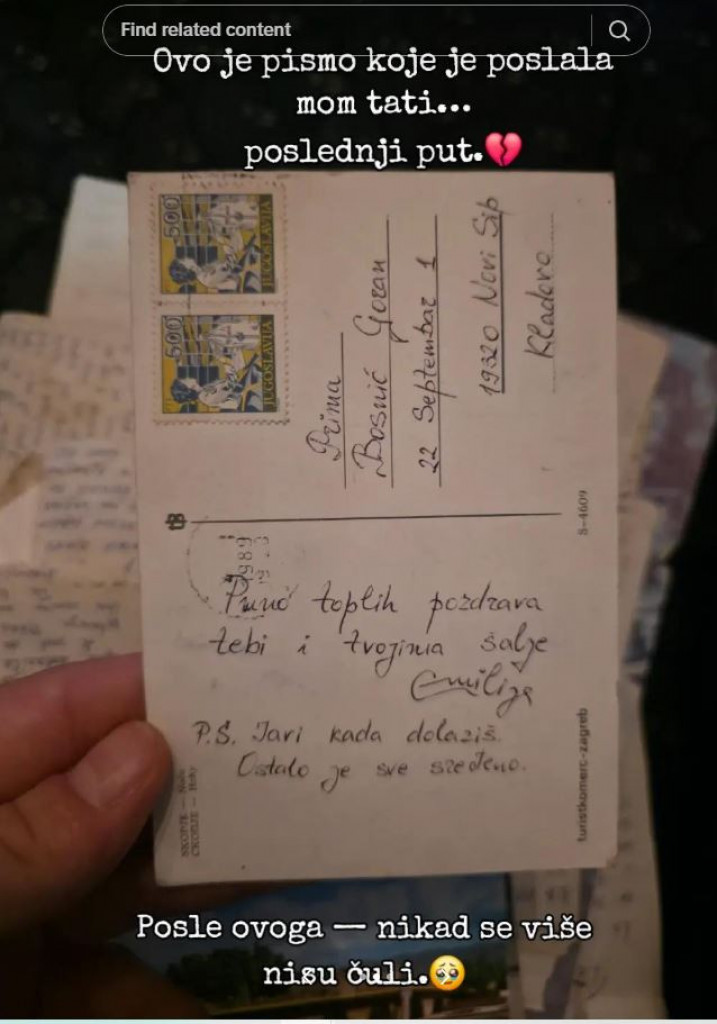 Find related content
Ovo je pismo koje je poslala
mom tati...
poslednji put.💔
500
JUGOSLAVIJA
500
JUGOSLAVIJA
Prima
Bosnić Goran
22 Septembar 1
19320 Novi Sip
Kladovo
S-4609
1989
Puno toplih pozdrava
tebi i tvojima šalje
Emilija
P.S. Javi kada dolaziš.
Ostalo je sve sređeno.
turistkomerc-zagreb
SKOPJE —
СКОПЈЕ —
Posle ovoga — nikad se više
nisu čuli.🥹